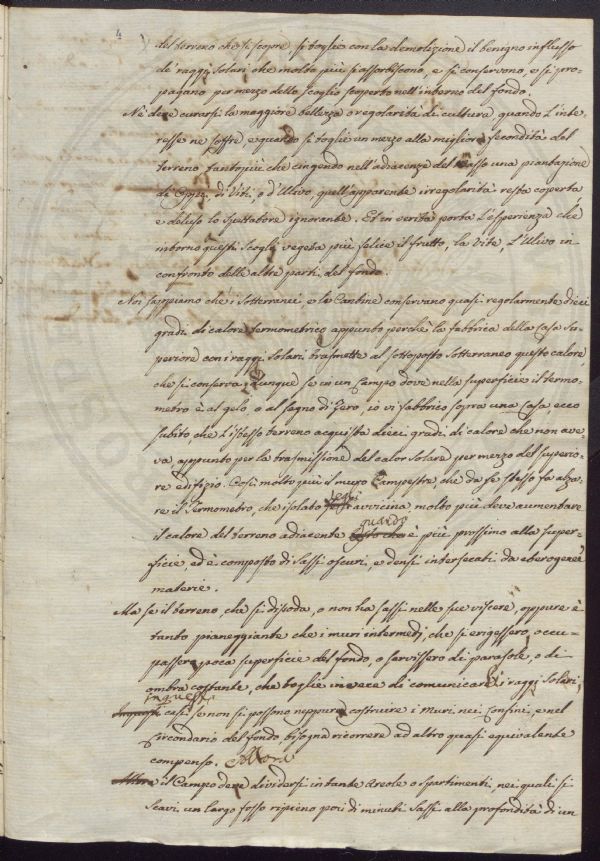 4
del terreno che si scopre, si toglie con la demolizione il benigno influsso
de' raggi Solari che molto più si assorbiscono, e si conservono, e si pro-
pagano per mezzo dello Scoglio scoperto nell'interno del fondo.
Nè dee curarsi la maggiore bellezza o regolarità di cultura quando l'inte-
resse ne soffre, e quando si toglie un mezzo alla migliore fecondità del
terreno tantopiù che cingendo nell'adiacenze del sasso una piantagione
di Viti, o d'Ulivo quell'apparente irregolarità resta coperta
e deluso lo Spettatore ignorante. Ed in verità porta l'esperienza che
intorno questi Scogli vegeta più felice il frutto, la Vite, l'Ulivo in
confronto delle altre parti del fondo.
Noi sappiamo che i Sotterranei e le Cantine conservano quasi regolarmente dieci
gradi di calore termometrico appunto perchè la fabbrica della Casa Su-
periore con i raggi Solari trasmette al sottoposto Sotterraneo questo calore,
che si conserva. Dunque se in un Campo dove nella superficie il termo-
metro è al gelo, o al segno di Zero, io vi fabbrico sopra una Casa, ecco
subito, che l'istesso terreno acquista dieci gradi di calore che non ave-
va appunto per la trasmissione del calor Solare per mezzo del superio-
re edifizio. Così molto più il muro Campestre che da se stesso fa alza-
re il Termometro, che isolato segli avvicina molto più deve aumentare
il calore del terreno adiacente quando è più prossimo alla super-
ficie, ed è composto di Sassi oscuri, e densi intersecati da eterogenee
materie.
Ma se il terreno, che si dissoda, o non ha sassi nelle sue viscere, oppure è
tanto pianeggiante che i muri intermedj, che si ergessero, occu-
passero poca superficie del fondo, o servissero di parasole, o di
ombra costante, che toglie invece di comunicare i raggi Solari,
in questi casi se non si possono neppure costruire i Muri nei Confini, e nel
Circondario del fondo bisogna ricorrere ad altro quasi equivalente
compenso. Allora
il Campo deve dividersi in tante Areole o Spartimenti, nei quali si
scavi un largo fosso ripieno poi di minuti Sassi alla profondità di un